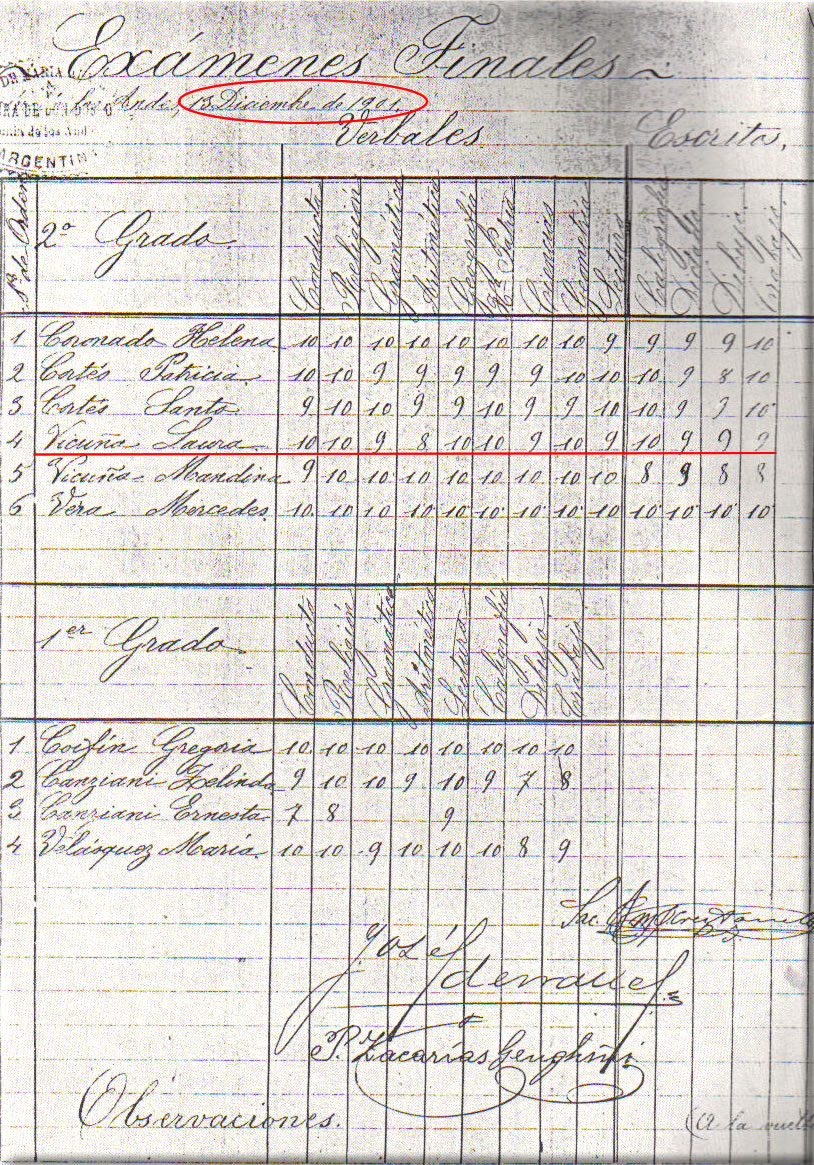 Exámenes Finales
DE MARIA
Junín de los Andes, 13 Diciembre de 1901.
ARGENTIN
Verbales. Escrito.
Nº de Orden 2º Grado Conducta Religión Gramática Aritmética Geografía Hª Patria Ciencias Geometría Lectura Caligrafía Dictado Dibujo Trabajo
1 Coronado Helena 10 10 10 10 10 10 10 10 9 9 9 9 10
2 Cortés Patricia 10 10 9 9 9 9 9 10 10 10 9 8 10
3 Cortés Santo 9 10 10 9 9 10 9 9 10 10 9 9 10
4 Vicuña Laura 10 10 9 8 10 10 9 10 9 10 9 9 9
5 Vicuña Mandina 9 10 10 10 10 10 10 10 10 8 9 8 8
6 Vera Mercedes. 10 10 10 10 10 10 10 10 10 10 10 10 10
1er Grado Conducta Religión Gramática Aritmética Lectura Caligrafía Dibujo Trabajo
1 Coifín Gregoria 10 10 10 10 10 10 10 10
2 Canziani Zelinda 9 10 10 9 10 9 7 8
3 Canziani Ernesta 7 8 9
4 Velásquez María. 10 10 9 10 10 10 8 9
Sac.
José
P. Zacarías Genghini
Observaciones. (A la vuelta